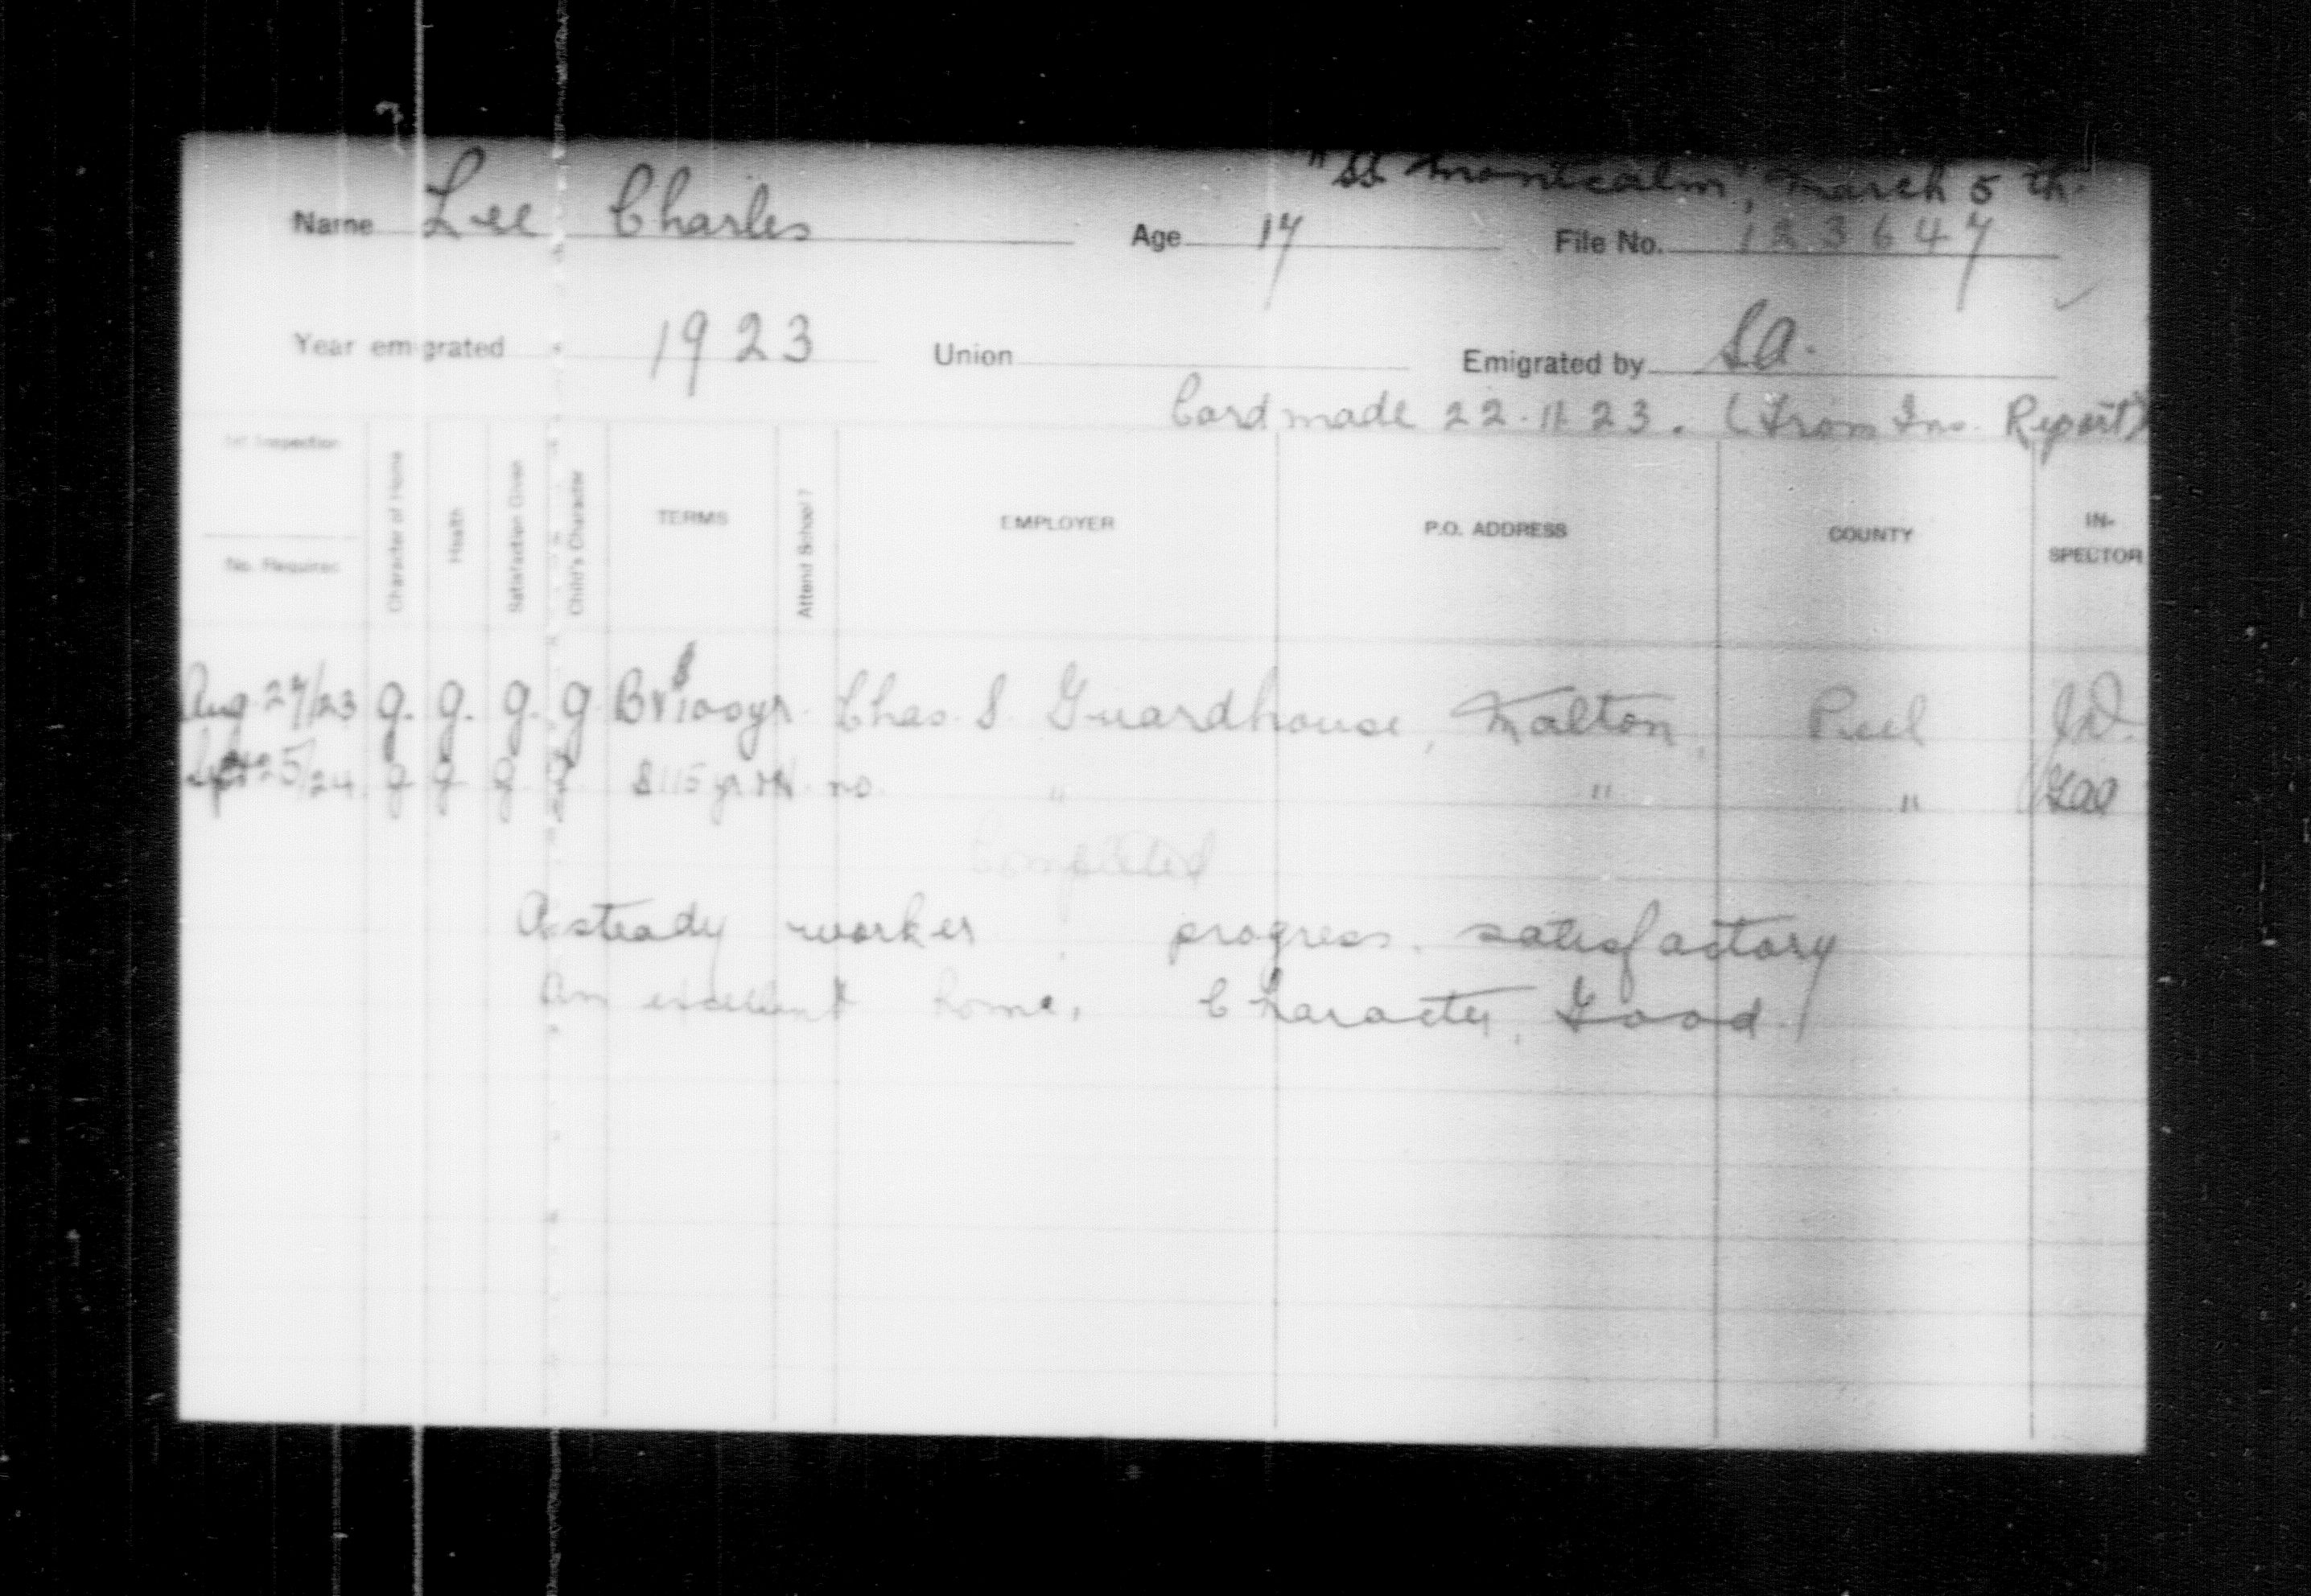 "SS Montcalm", March 5th.
Name Lee Charles Age 17 File No. 123647
Year emigrated 1923 Union Emigrated by S.A.
Card made 22.11.23. (From Ins. Report)
1st Inspection
No. Required
Character of Home
Health
Satisfaction Given
Child's Character
TERMS
Attend School?
EMPLOYER
P.O. ADDRESS
COUNTY
IN-
SPECTOR
Aug 27/23 g. g. g. g $100 yr. Chas. S. Guardhouse, Malton, Peel
25/24 g g g g $115 yr no. " " "
Completed
A steady worker. progress. satisfactory
An excellent home. Character, Good.